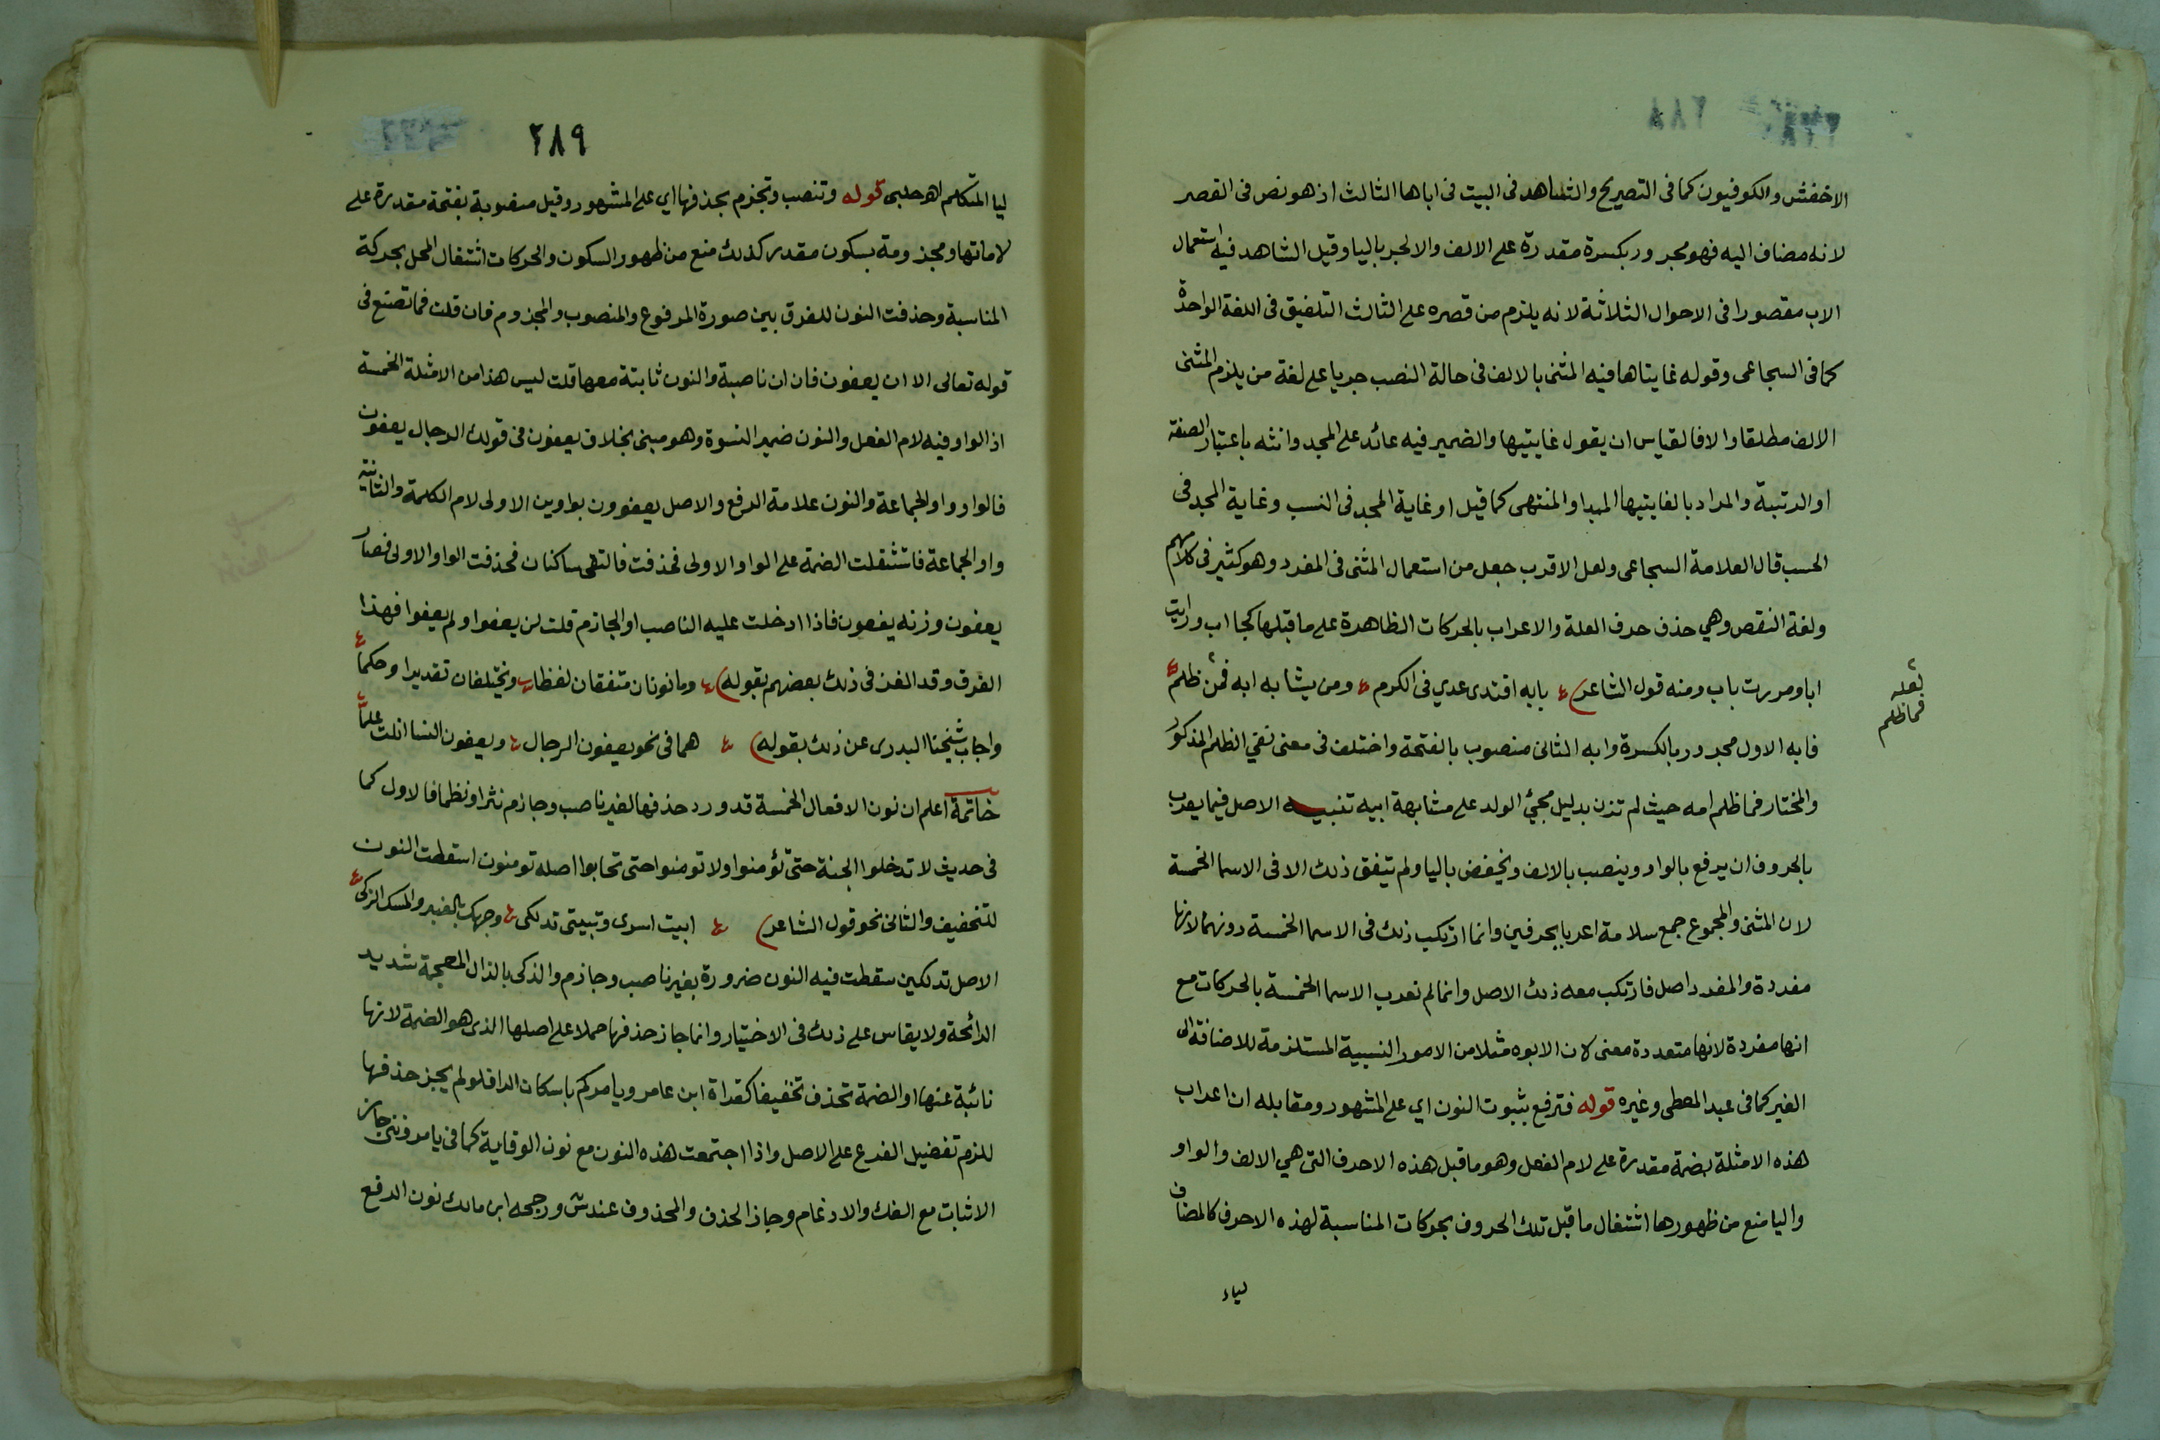 ٢٨٨
الاخفش والكوفيون كما فى التصريح والشاهد فى البيت فى اباها الثالث اذ هو نص فى القصر
لانه مضاف اليه فهو مجرور بكسرة مقدرة على الالف والا لجر باليا وقيل الشاهد فيه استعمال
الاب مقصورا فى الاحوال الثلاثة لانه يلزم من قصره على الثالث التلفيق فى اللغة الواحدة
كما فى السجاعى وقوله غايتاها فيه المثنى بالالف فى حالة النصب جريا على لغة من يلزم المثنى
الالف مطلقا والا فالقياس ان يقول غايتيها والضمير فيه عائد على المجد وانثه باعتبار الصفة
او الرتبة والمراد بالغايتيها المبدا والمنتهى كما قيل او غاية المجد فى النسب وغاية المجد فى
الحسب قال العلامة السجاعى ولعل الاقرب جعل من استعمال المثنى فى المفرد وهو كثير فى كلامهم
ولغة النقص وهي حذف حرف العلة والاعراب بالحركات الظاهرة على ما قبلها كجا اب ورايت
ابا ومررت باب ومنه قول الشاعر بابه اقتدى عدي فى الكرم ومن يشابه ابه فمن ظلم
فابه الاول مجرور بالكسرة وابه الثانى منصوب بالفتحة واختلف فى معنى نفي الظلم المذكور
والمختار فما ظلم امه حيث لم تزن بدليل مجيئ الولد على مشابهة ابيه تنبيه الاصل فيما يعرب
بالحروف ان يرفع بالواو وينصب بالالف ويخفض باليا ولم يتفق ذلك الا فى الاسما الخمسة
لان المثنى والمجموع جمع سلامة اعربا بحرفين وانما ارتكب ذلك فى الاسما الخمسة دونهما لانها
مفردة والمفرد اصل فارتكب معه ذلك الاصل وانما لم تعرب الاسما الخمسة بالحركات مع
انها مفردة لانها متعددة معنى لان الابوه مثلا من الامور النسبية المستلزمة للاضافة الى
الغير كما فى عبد المعطى وغيره قوله فترفع بثبوت النون اي على المشهور ومقابله ان اعراب
هذه الامثلة بضمة مقدرة على لام الفعل وهو ما قبل هذه الاحرف التى هي الالف والواو
واليا منع من ظهورها اشتغال ما قبل تلك الحروف بحركات المناسبة لهذه الاحرف كالمضاف
لياء
لعله
فما ظلم
٢٨٩
ليا المتكلم اهـ حلبى قوله وتنصب وتجزم بحذفها اي على المشهور وقيل منصوبة بفتحة مقدرة على
لاماتها ومجزومة بسكون مقدر كذلك منع من ظهور السكون والحركات اشتغال المحل بحركة
المناسبة وحذفت النون للفرق بين صورة المرفوع والمنصوب والمجزوم فان قلت فما تصنع فى
قوله تعالى الا ان يعفون فان ان ناصبة والنون ثابتة معها قلت ليس هذا من الامثلة الخمسة
اذ الواو فيه لام الفعل والنون ضمير النسوة وهو مبنى بخلاف يعفون فى قولك الرجال يعفون
فالواو واو الجماعة والنون علامة الرفع والاصل يعفوون بواوين الاولى لام الكلمة والثانية
واو الجماعة فاستثقلت الضمة على الواو الاولى فحذفت فالتقى ساكنان فحذفت الواو الاولى فصار
يعفون وزنه يفعون فاذا ادخلت عليه الناصب او الجازم قلت لن يعفوا ولم يعفوا فهذا
الفرق وقد الغز فى ذلك بعضهم بقوله وما نونان متفقان لفظا ويختلفان تقديرا وحكما
واجاب شيخنا البدرى عن ذلك بقوله هما فى نحو يعفون الرجال ويعفون النسا انلت علما
خاتمة اعلم ان نون الافعال الخمسة قد ورد حذفها لغير ناصب وجازم نثرا ونظما فالاول كما
فى حديث لا تدخلوا الجنة حتى تؤمنوا ولا تومنوا حتى تحابوا اصله تومنون اسقطت النون
للتخفيف والثانى نحو قول الشاعر ابيت اسرى وتبيتى تدلكى وجهك بالعنبر والمسك الزكى
الاصل تدلكين سقطت فيه النون ضرورة بغير ناصب وجازم والذكى بالذال المعجمة شديد
الرائحة ولا يقاس على ذلك فى الاختيار وانما جاز حذفها حملا على اصلها الذى هو الضمة لانها
نائبة عنها او الضمة تحذف تخفيفا كقراة ابن عامر ويامركم باسكان الرا فلو لم يجز حذفها
للزم تفضيل الفرع على الاصل واذا اجتمعت هذه النون مع نون الوقاية كما فى يامروننى جاز
الاثبات مع الفك والادغام وجاز الحذف والمحذوف عند ش ورجحه ابن مالك نون الرفع